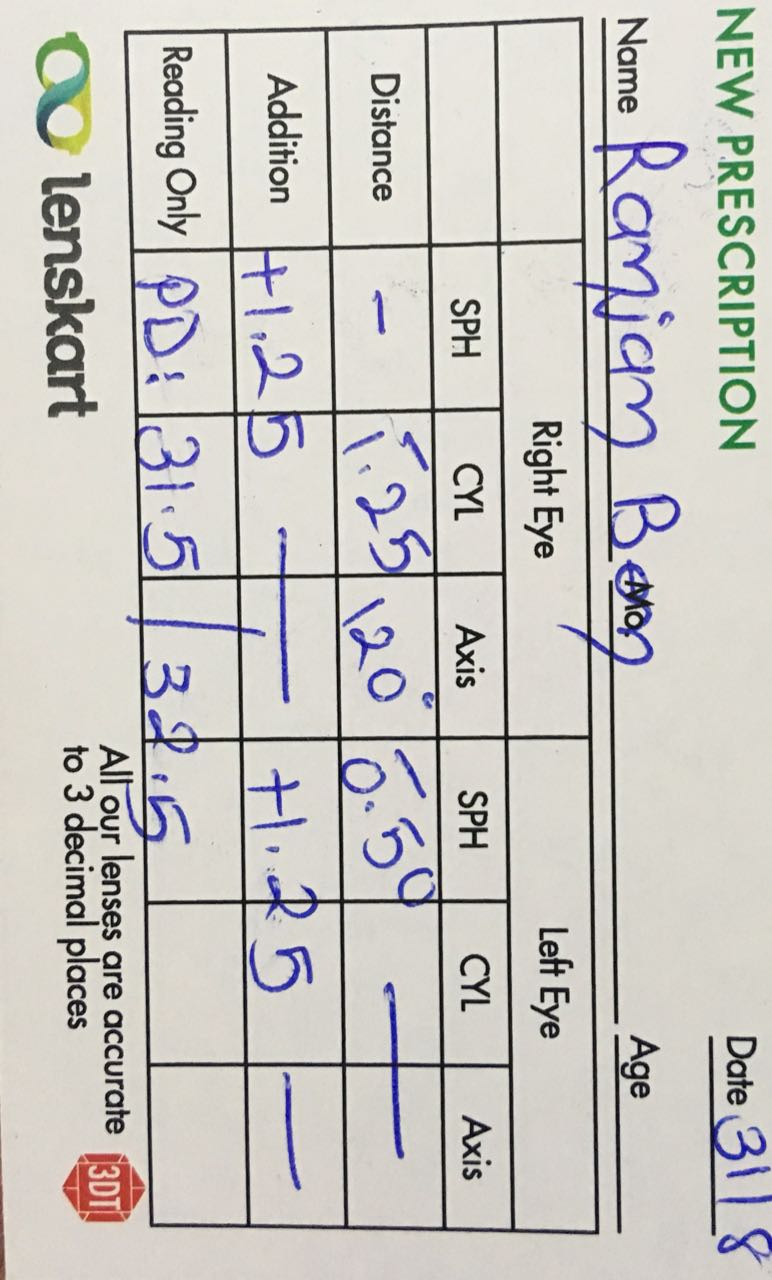 NEW PRESCRIPTION Date 31/8
Name Ramjam Mo. Age
Right Eye Left Eye
SPH CYL Axis SPH CYL Axis
Distance – -1.25 120° -0.50 —
Addition +1.25 — +1.25 —
Reading Only PD: 31.5 / 32.5
lenskart All our lenses are accurate
to 3 decimal places 3DT